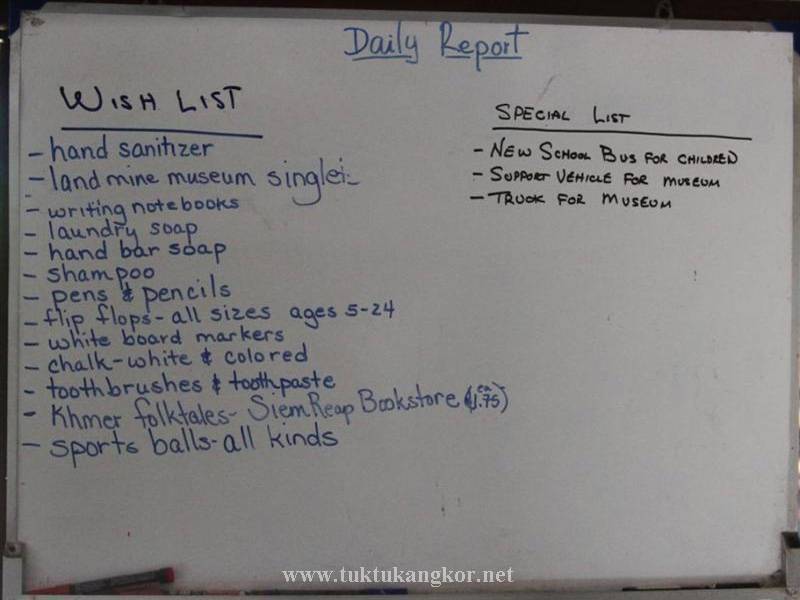 Daily Report
WISH LIST
- hand sanitizer
- land mine museum
- writing notebooks
- laundry soap
- hand bar soap
- shampoo
- pens & pencils
- flip flops - all sizes ages 5-24
- white board markers
- chalk - white & colored
- toothbrushes & toothpaste
- Khmer folktales - Siem Reap Bookstore (1.75 ea)
- sports balls - all kinds
SPECIAL LIST
- NEW SCHOOL BUS FOR CHILDREN
- SUPPORT VEHICLE FOR MUSEUM
- TRUCK FOR MUSEUM
www.tuktukangkor.net